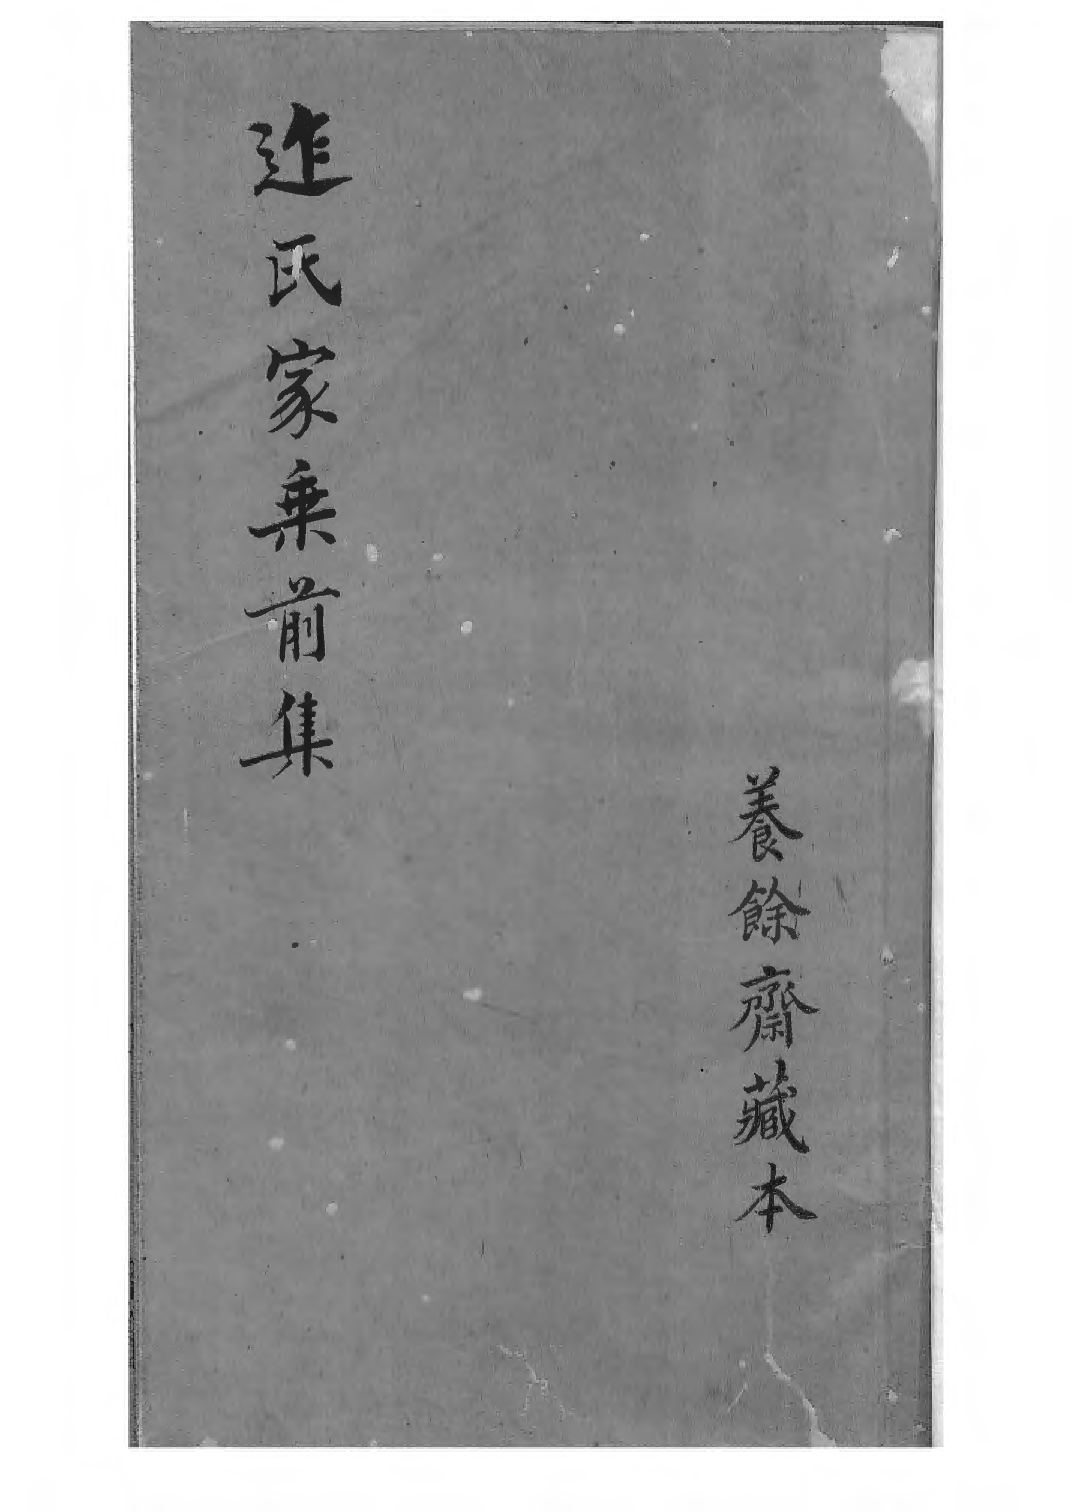 養餘齋藏本
迮氏家乗前集